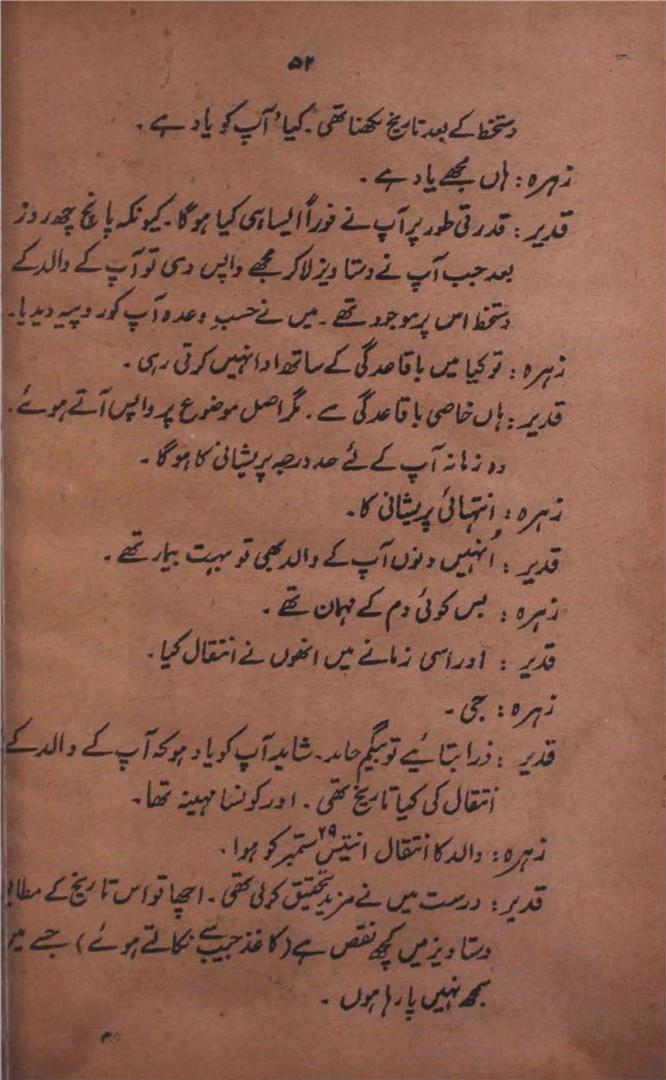 ۵۲
دستخط کے بعد تاریخ لکھنا تھی۔ کیا آپ کو یاد ہے۔
زہرہ : ہاں مجھے یاد ہے۔
قدیر : قدرتی طور پر آپ نے فوراً ایسا ہی کیا ہوگا۔ کیونکہ پانچ چھ روز
بعد جب آپ نے دستاویز لاکر مجھے واپس دی تو آپ کے والد کے
دستخط اس پر موجود تھے۔ میں نے حسبِ وعدہ آپ کو روپیہ دیدیا۔
زہرہ : تو کیا میں باقاعدگی کے ساتھ ادا نہیں کرتی رہی۔
قدیر : ہاں خاصی باقاعدگی سے۔ مگر اصل موضوع پر واپس آتے ہوئے۔
وہ زمانہ آپ کے لئے حد درجہ پریشانی کا ہوگا۔
زہرہ : انتہائی پریشانی کا۔
قدیر : اُنہیں دنوں آپ کے والد بھی تو بہت بیمار تھے۔
زہرہ : بس کوئی دم کے مہمان تھے۔
قدیر : اور اسی زمانے میں انھوں نے انتقال کیا۔
زہرہ : جی۔
قدیر : ذرا بتائیے تو بیگم حامد۔ شاید آپ کو یاد ہو کہ آپ کے والد کے
انتقال کی کیا تاریخ تھی۔ اور کونسا مہینہ تھا۔
زہرہ : والد کا انتقال انتیس ۲۹ ستمبر کو ہوا۔
قدیر : درست میں نے مزید تحقیق کرلی تھی۔ اچھا تو اس تاریخ کے
دستاویز میں کچھ نقص ہے (کاغذ جیب سے نکالتے ہوئے) جسے میں
سمجھ نہیں پا رہا ہوں۔